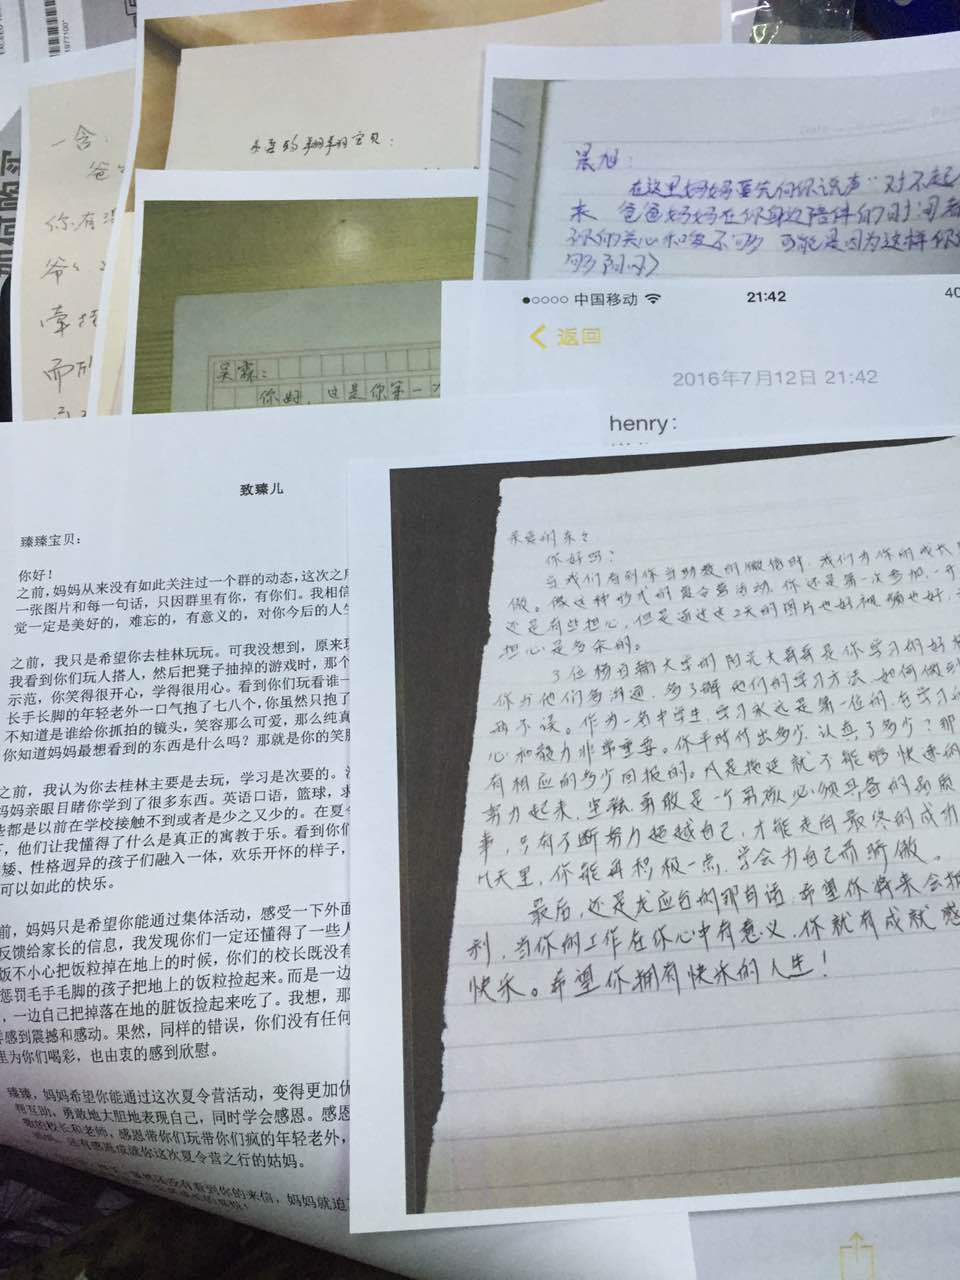 一含:
爸
你有
爷
牵挂
而
亲爱的翔翔宝贝:
晨旭:
在这里妈妈要先向你说声"对不起
来 爸爸妈妈在你身边陪伴的时间
的关心和爱不够 可能是因为这样你
够
●○○○○ 中国移动
21:42
40
返回
2016年7月12日 21:42
henry:
吴霖:
你好,这是你第一
致臻儿
臻臻宝贝:
你好!
之前,妈妈从来没有如此关注过一个群的动态,这次之所
一张图片和每一句话,只因群里有你,有你们。我相信
觉一定是美好的,难忘的,有意义的,对你今后的人生
之前,我只是希望你去桂林玩玩。可我没想到,原来玩
我看到你们玩人搭人,然后把凳子抽掉的游戏时,那个
示范,你笑得很开心,学得很用心。看到你们玩看谁一
长手长脚的年轻老外一口气抱了七八个,你虽然只抱了
不知道是谁给你抓拍的镜头,笑容那么可爱,那么纯真
你知道妈妈最想看到的东西是什么吗?那就是你的笑脸
之前,我认为你去桂林主要是去玩,学习是次要的。没
妈妈亲眼目睹你学到了很多东西。英语口语,篮球,求
些都是以前在学校接触不到或者是少之又少的。在夏令
,他们让我懂得了什么是真正的寓教于乐。看到你们
矮、性格迥异的孩子们融入一体,欢乐开怀的样子,
可以如此的快乐。
前,妈妈只是希望你能通过集体活动,感受一下外面
反馈给家长的信息,我发现你们一定还懂得了一些人
饭不小心把饭粒掉在地上的时候,你们的校长既没有
惩罚毛手毛脚的孩子把地上的饭粒捡起来。而是一边
,一边自己把掉落在地的脏饭捡起来吃了。我想,那
感到震撼和感动。果然,同样的错误,你们没有任何
里为你们喝彩,也由衷的感到欣慰。
臻臻,妈妈希望你能通过这次夏令营活动,变得更加优
相互助,勇敢地大胆地表现自己,同时学会感恩。感恩
的校长和老师,感恩带你们玩带你们疯的年轻老外,
还有感恩成就你这次夏令营之行的姑妈。
没有看到你的来信,妈妈就迫
亲爱的来来
你好吗?
当我们看到你当助教的微信时,我们为你的成长
傲。像这种形式的夏令营活动,你还是第一次参加,一
还是有些担心,但是通过这2天的图片也好视频也好,
担心是多余的。
3位杨百翰大学的阳光大哥哥是你学习的好榜
你与他们多沟通,多了解他们的学习方法,如何做到
两不误。作为一名中学生,学习永远是第一位的,在学习
心和毅力非常重要。你平时付出多少,认真了多少?那
有相应的多少回报的。凡是拖延就不能够快速的
努力起来,坚强、勇敢是一个男孩必须具备的品质
事,只有不断努力超越自己,才能走向最终的成功
几天里,你能再积极一点,学会为自己而骄傲。
最后,还是龙应台的那句话,希望你将来会拥
利,当你的工作在你心中有意义,你就有成就感
快乐。希望你拥有快乐的人生!